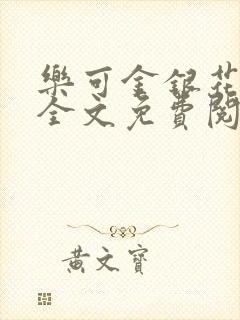 樂可金銀花
全文免費閱
黃文寶